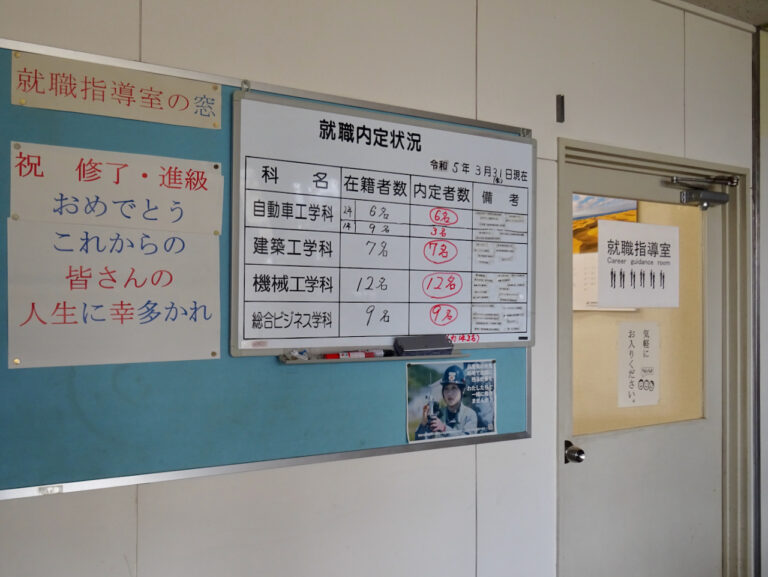 就職指導室の窓
祝 修了・進級
おめでとう
これからの
皆さんの
人生に幸多かれ
就職内定状況
令和5年3月31日現在
科 名 在籍者数 内定者数 備 考
自動車工学科 2年 6名 6名
1年 9名 3名
建築工学科 7名 7名
機械工学科 12名 12名
総合ビジネス学科 9名 9名
就職指導室
Career guidance room
気軽に
お入りください。